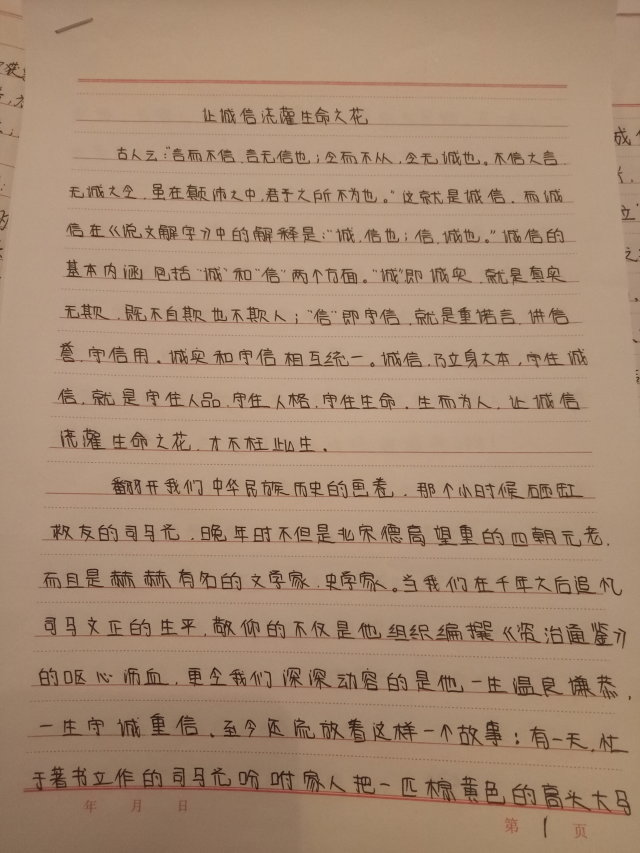 让诚信浇灌生命之花
古人云："言而不信,言无信也;令而不从,令无诚也。不信之言
无诚之令,虽在颠沛之中,君子之所不为也。"这就是诚信,而诚
信在《说文解字》中的解释是:"诚,信也;信,诚也。"诚信的
基本内涵包括"诚"和"信"两个方面。"诚"即诚实,就是真实
无欺,既不自欺也不欺人;"信"即守信,就是重诺言,讲信
誉,守信用。诚实和守信相互统一。诚信,乃立身之本,守住诚
信,就是守住人品,守住人格,守住生命,生而为人,让诚信
浇灌生命之花,才不枉此生。
翻开我们中华民族历史的画卷,那个小时候砸缸
救友的司马光,晚年时不但是北宋德高望重的四朝元老,
而且是赫赫有名的文学家、史学家。当我们在千年之后追忆
司马文正的生平,敬仰的不仅是他组织编撰《资治通鉴》
的呕心沥血,更令我们深深动容的是他一生温良谦恭,
一生守诚重信。至今还流放着这样一个故事:有一天,忙
于著书立作的司马光吩咐家人把一匹棕黄色的高头大马
年 月 日
第 1 页